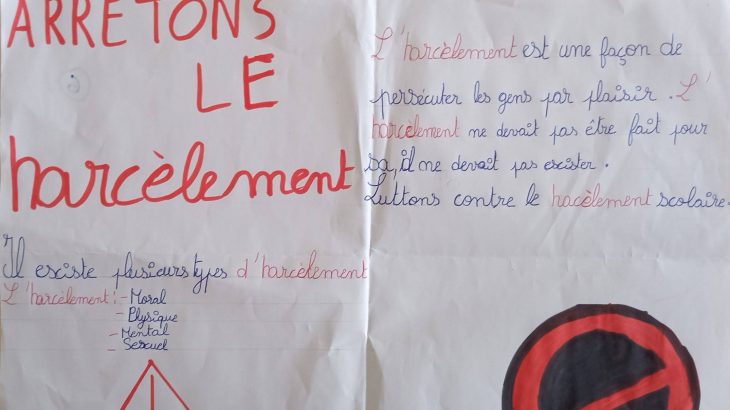 ARRÊTONS
LE
harcèlement
Il esciste plusiurs types d'harcèlement
L'harcèlement : - Moral
- Physique
- Mental
- Sexuel
L'harcèlement est une façon de
persécuter les gens par plaisir. L'
harcèlement ne devait pas être fait pour
sa, il ne devait pas escister.
Luttons contre le hacèlement scolaire.